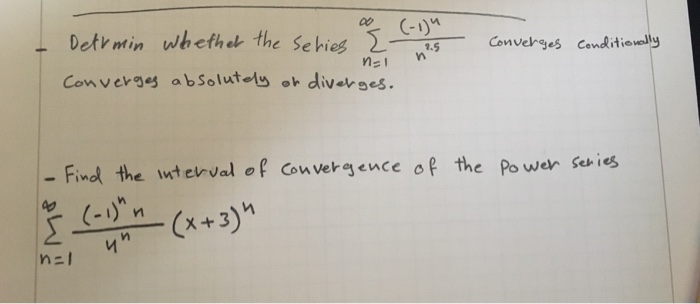 - Detrmin whether the series \sum_{n=1}^{\infty} \frac{(-1)^n}{n^{2.5}} converges conditionally
converges absolutely or diverges.
- Find the interval of convergence of the power series
\sum_{n=1}^{\infty} \frac{(-1)^n n}{4^n} (x+3)^n